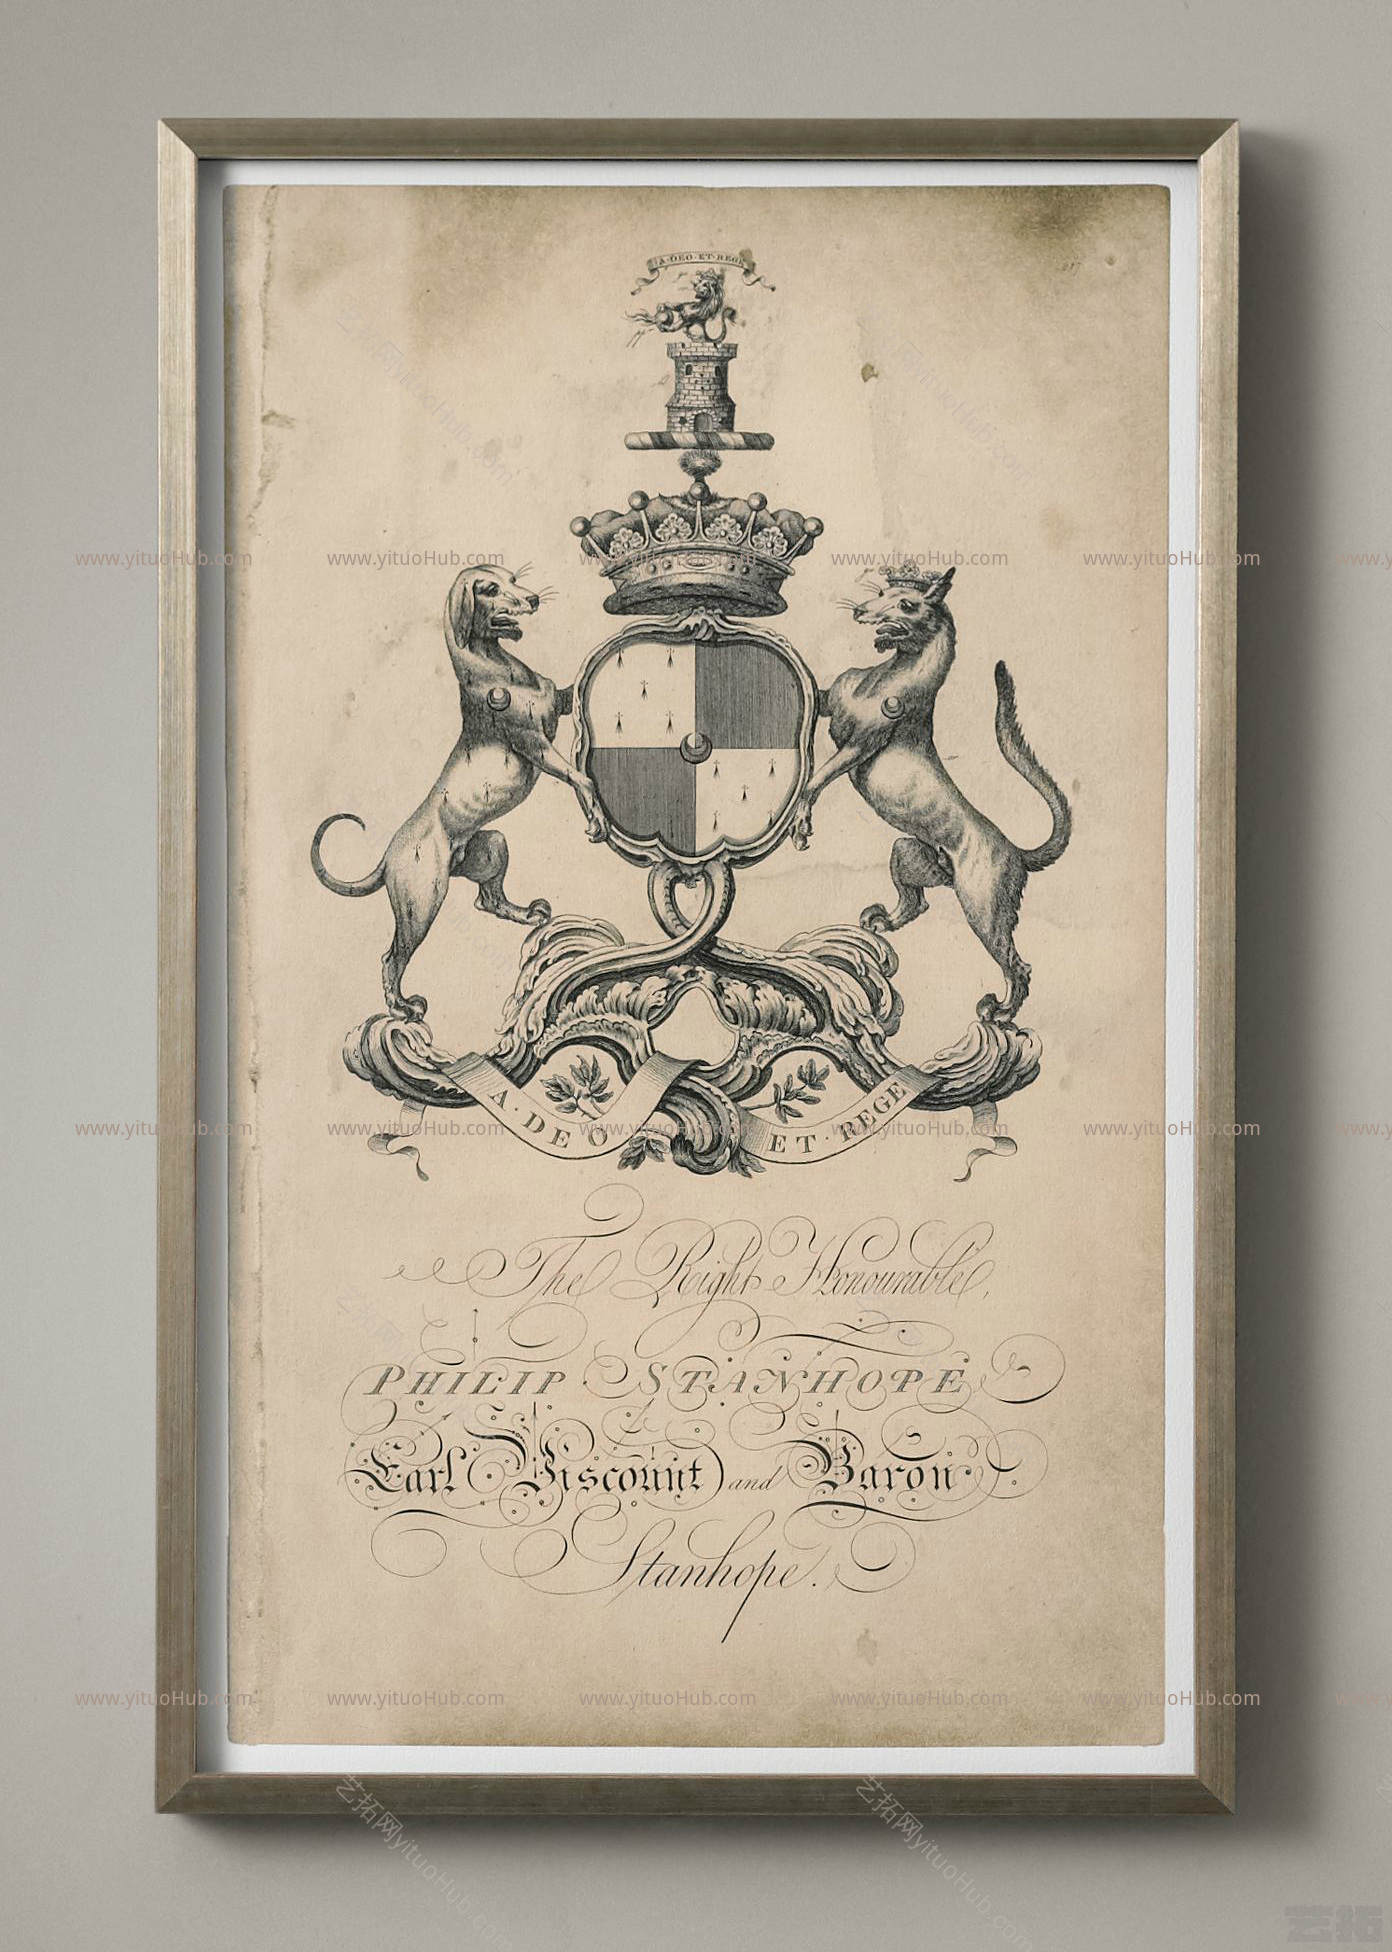 A·DEO·ET·REGE
www.yituoHub.com www.yituoHub.com www.yituoHub.com www.yituoHub.com www.yituoHub.com
A·DEO ET·REGE
www.yituoHub.com www.yituoHub.com www.yituoHub.com www.yituoHub.com www.yituoHub.com
The Right Honourable,
PHILIP STANHOPE
Earl Viscount and Baron
Stanhope.
www.yituoHub.com www.yituoHub.com www.yituoHub.com www.yituoHub.com www.yituoHub.com
艺拓网yituoHub.com 艺拓网yituoHub.com
艺拓